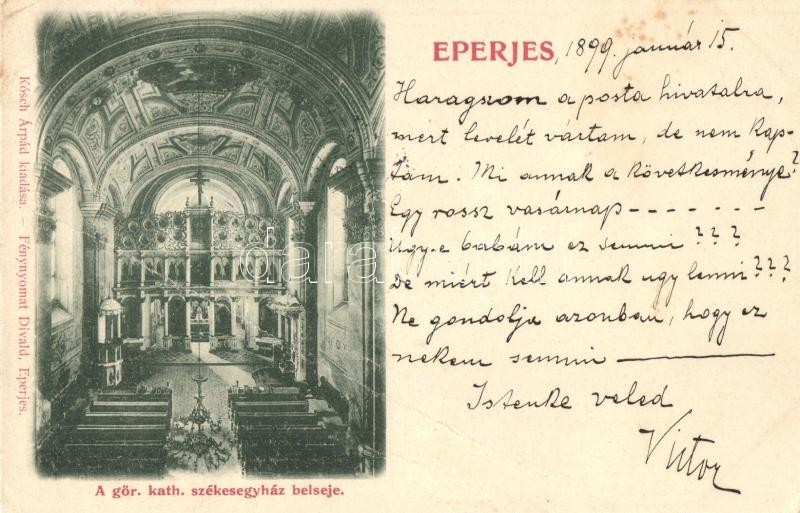 EPERJES, 1899. január 15.
Haragszom a posta hivatalra,
mert levelét vártam, de nem kap-
tam. Mi annak a következménye?
Egy rossz vasárnap - - - - - - -
Ugy-e babám ez semmi???
De miért kell annak ugy lenni???
Ne gondolja azonban, hogy ez
nekem semmi ———
Istenke veled
Victor
Kósch Árpád kiadása. – Fénynyomat Divald, Eperjes.
A gör. kath. székesegyház belseje.